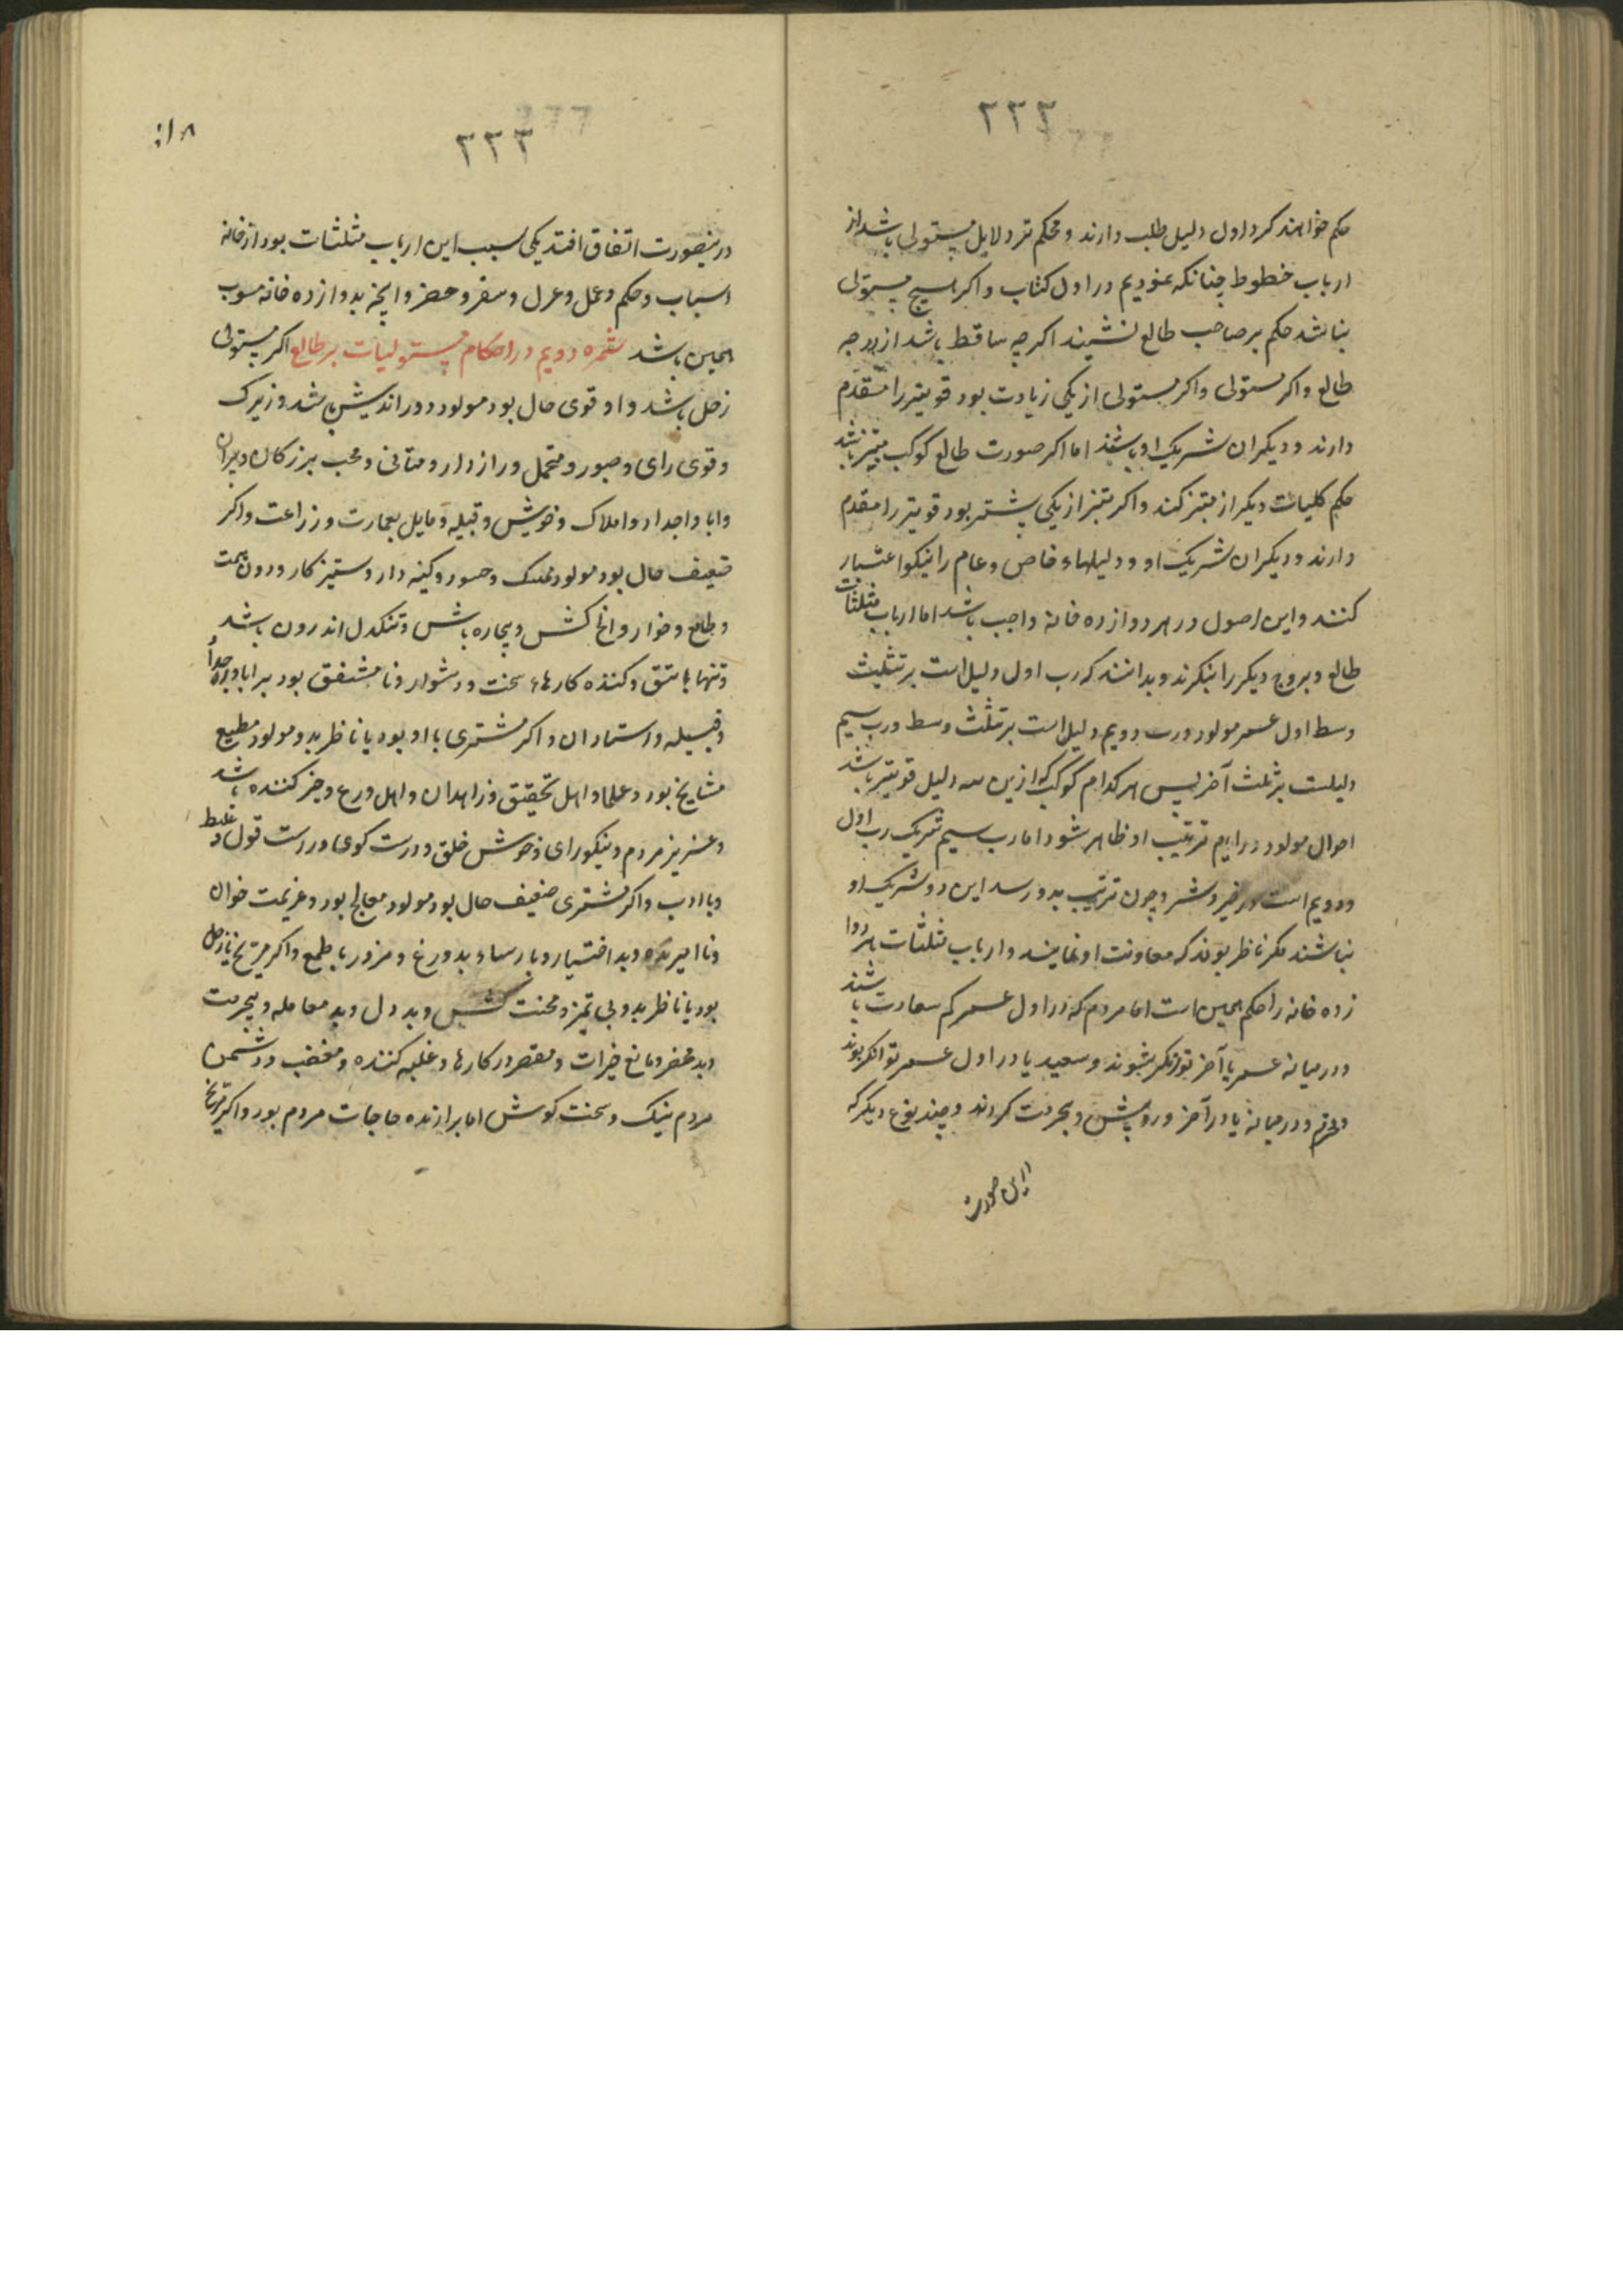 ۲۳۲
حکم خواهند کرد اول دلیل طلب دارند و محکم تر دلایل مستولی باشد از
ارباب خطوط چنانکه نمودیم در اول کتاب و اکر هیچ مستولی
نباشد حکم بر صاحب طالع نشیند اکر چه ساقط باشد از درجه
طالع و اکر مستولی و اکر مستولی از یکی زیادت بود قویتر را مقدم
دارند و دیکران شریک او باشند اما اکر صورت طالع کوکب مبتز باشد
حکم کلیات دیکر از مبتز کنند و اکر مبتز از یکی بیشتر بود قویتر را مقدم
دارند و دیکران شریک او و دلیلهاء خاص و عام را نیکو اعتبار
کنند و این اصول در هر دوازده خانه واجب باشد اما ارباب مثلثات
طالع و بروج دیکر را بنکرند و بدانند که رب اول دلیل است بر تثلیث
وسط اول عمر مولود و رب دویم دلیل است بر تثلث وسط و رب سیم
دلیلست بر ثلث آخر پس هر کدام کوکب که ازین سه دلیل قویتر باشد
احوال مولود در ایام ترتیب او ظاهر شود اما رب سیم شریک رب اول
و دویم است در خیر و شر و چون ترتیب بدو رسد این دو شریک او
نباشند مکر ناظر بوند که معاونت او نمایند و ارباب مثلثات هر دوا
زده خانه را حکم همین است اما مردم که در اول عمر کم سعادت باشند
و در میانه عمر یا آخر توانکر شوند و سعید یا در اول عمر توانکر بوند
و محترم و در میانه یا در آخر درویش و بی حرمت کردند و چند نوع دیکر که
در این صورت
۲۳۳
درینصورت اتفاق افتد یکی سبب این ارباب مثلثات بود از خانه
اسباب و حکم و عمل و عزل و سفر و حضر و انچه بدوازده خانه منسوب
همین باشد ثمره دویم در احکام مستولیات بر طالع اکر مستولی
زحل باشد و او قوی حال بود مولود دور اندیش باشد و زیرک
و قوی رای و صبور و متحمل و رازدار و متانی و محب بزرکان و پیران
و ابا و اجداد و املاک و خویش و قبیله و مایل بعمارت و زراعت و اکر
ضعیف حال بود مولود ممسک و حسود و کینه دار و ستیز کار و دون همت
و طامع و خوار و کش و بیچاره باشد و تنکدل اندرون باشد
و تنها باشد و کننده کارهاء سخت و دشوار و نا مشفق بود بر ابا و اجداد
و قبیله و استادان و اکر مشتری با او بود یا ناظر بدو مولود مطیع
مشایخ بود و علما و اهل تحقیق و زاهدان و اهل ورع و خیر کننده باشد
و عزیز مردم و نیکو رای و خوش خلق و درست کوی و درست قول و غلیظ
و با ادب و اکر مشتری ضعیف حال بود مولود معالج بود و عزیمت خوان
و نا امیر و بد اختیار و پارساء بدروغ و مزور با طمع و اکر مریخ با زحل
بود یا ناظر بدو بی تمیز و محنت کش و بد دل و بد معامله و بیحرمت
و بد محضر و مانع خیرات و مقصر در کارها و غلبه کننده و مغضب و دشمن
مردم نیک و سخت کوش اما برازنده حاجات مردم بود و اکر مریخ